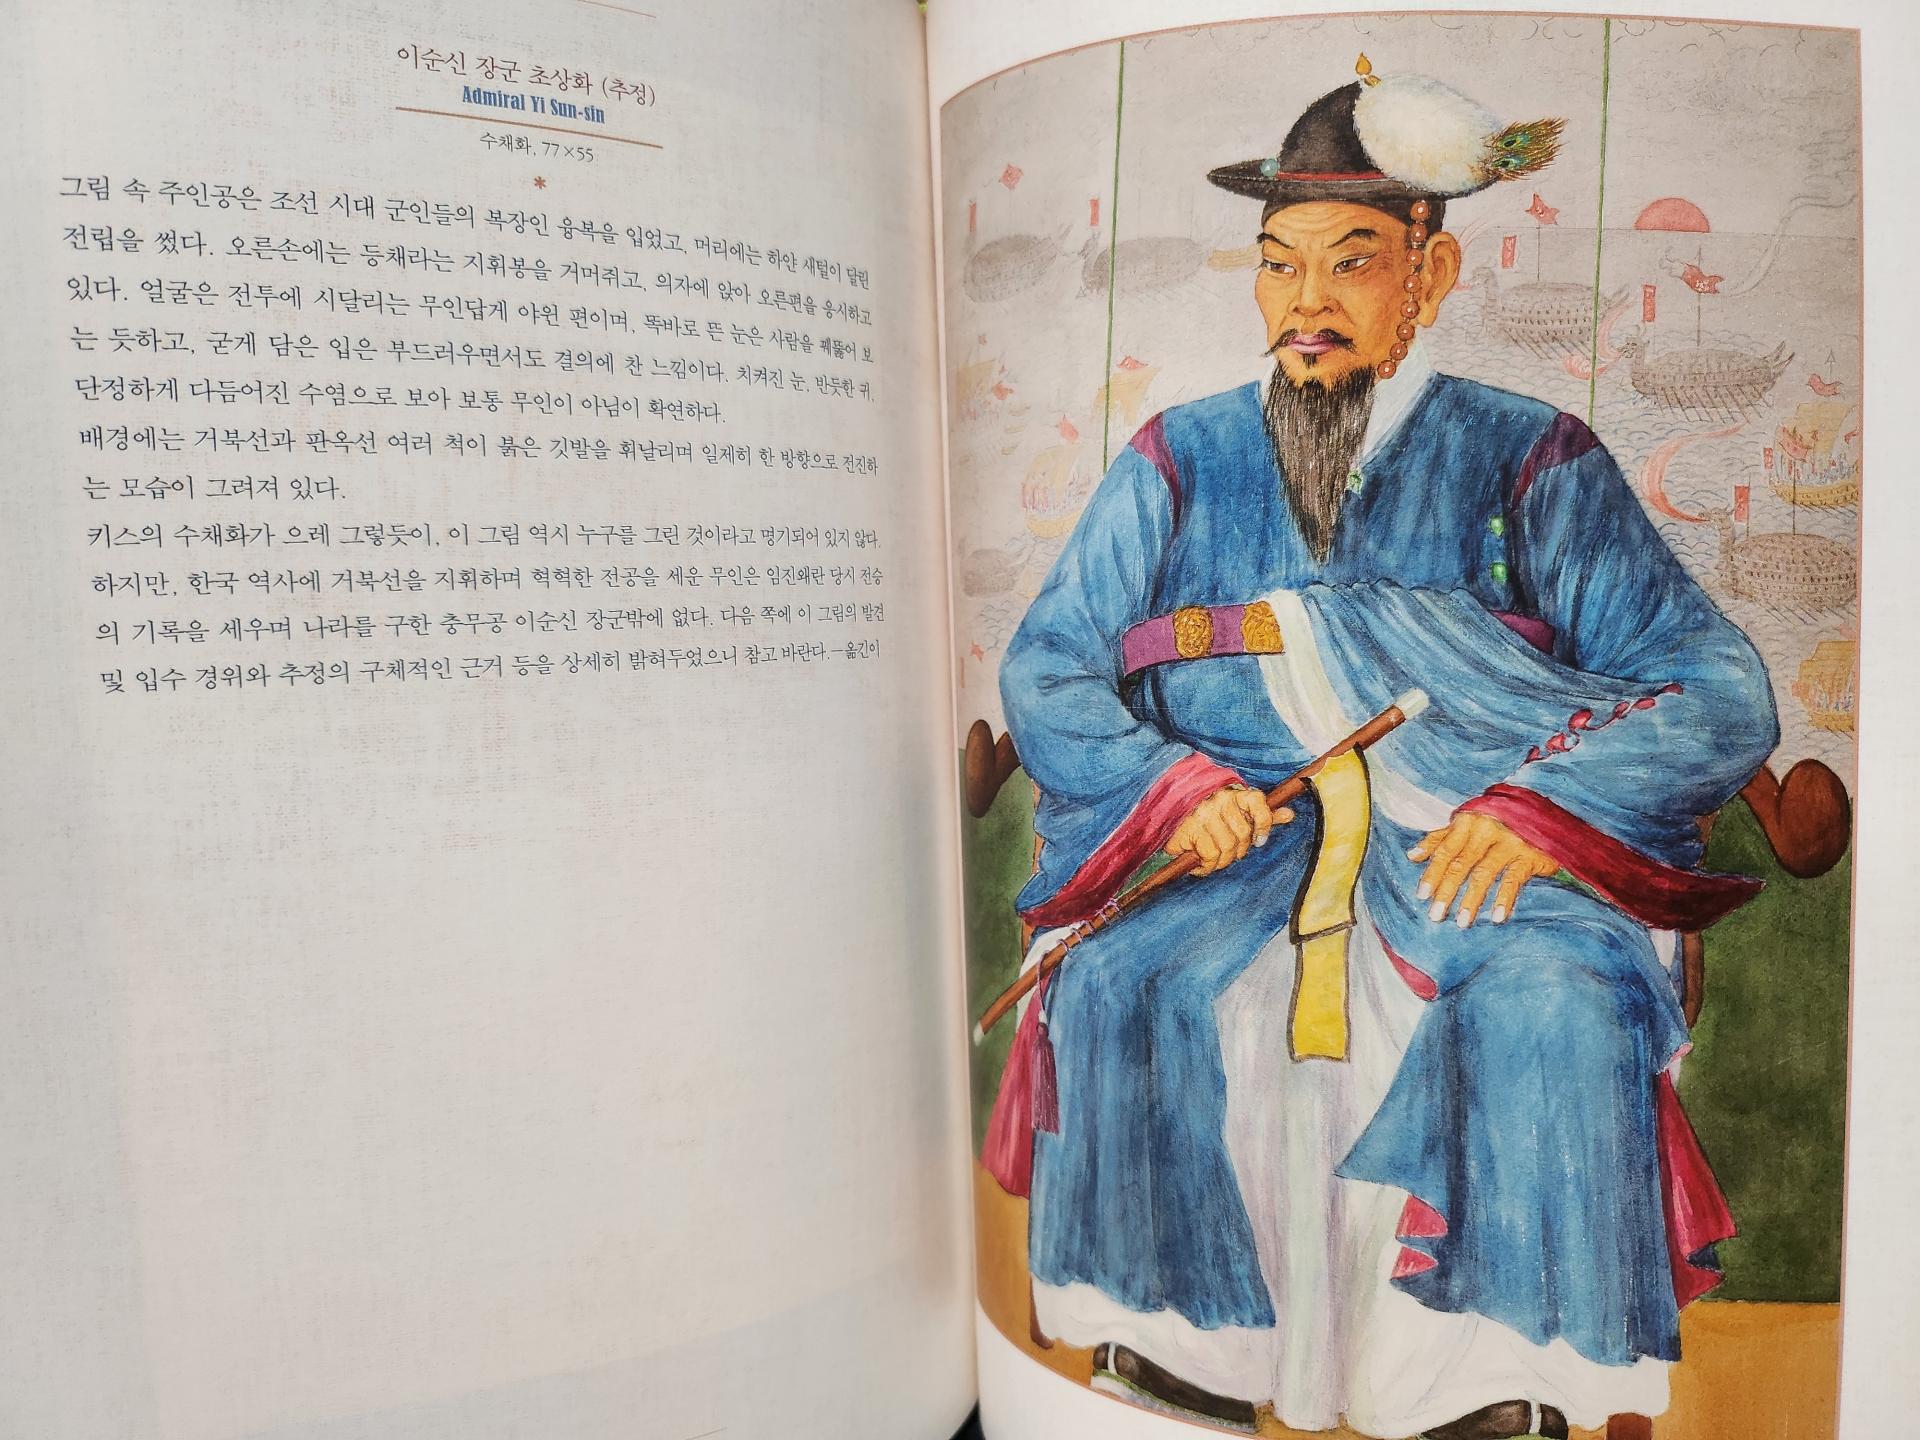 이순신 장군 초상화 (추정)
Admiral Yi Sun-sin
수채화, 77×55
*
그림 속 주인공은 조선 시대 군인들의 복장인 융복을 입었고, 머리에는 하얀 새털이 달린
전립을 썼다. 오른손에는 등채라는 지휘봉을 거머쥐고, 의자에 앉아 오른편을 응시하고
있다. 얼굴은 전투에 시달리는 무인답게 야윈 편이며, 똑바로 뜬 눈은 사람을 꿰뚫어 보
는 듯하고, 굳게 담은 입은 부드러우면서도 결의에 찬 느낌이다. 치켜진 눈, 반듯한 귀,
단정하게 다듬어진 수염으로 보아 보통 무인이 아님이 확연하다.
배경에는 거북선과 판옥선 여러 척이 붉은 깃발을 휘날리며 일제히 한 방향으로 전진하
는 모습이 그려져 있다.
키스의 수채화가 으레 그렇듯이, 이 그림 역시 누구를 그린 것이라고 명기되어 있지 않다.
하지만, 한국 역사에 거북선을 지휘하며 혁혁한 전공을 세운 무인은 임진왜란 당시 전승
의 기록을 세우며 나라를 구한 충무공 이순신 장군밖에 없다. 다음 쪽에 이 그림의 발견
및 입수 경위와 추정의 구체적인 근거 등을 상세히 밝혀두었으니 참고 바란다.—옮긴이